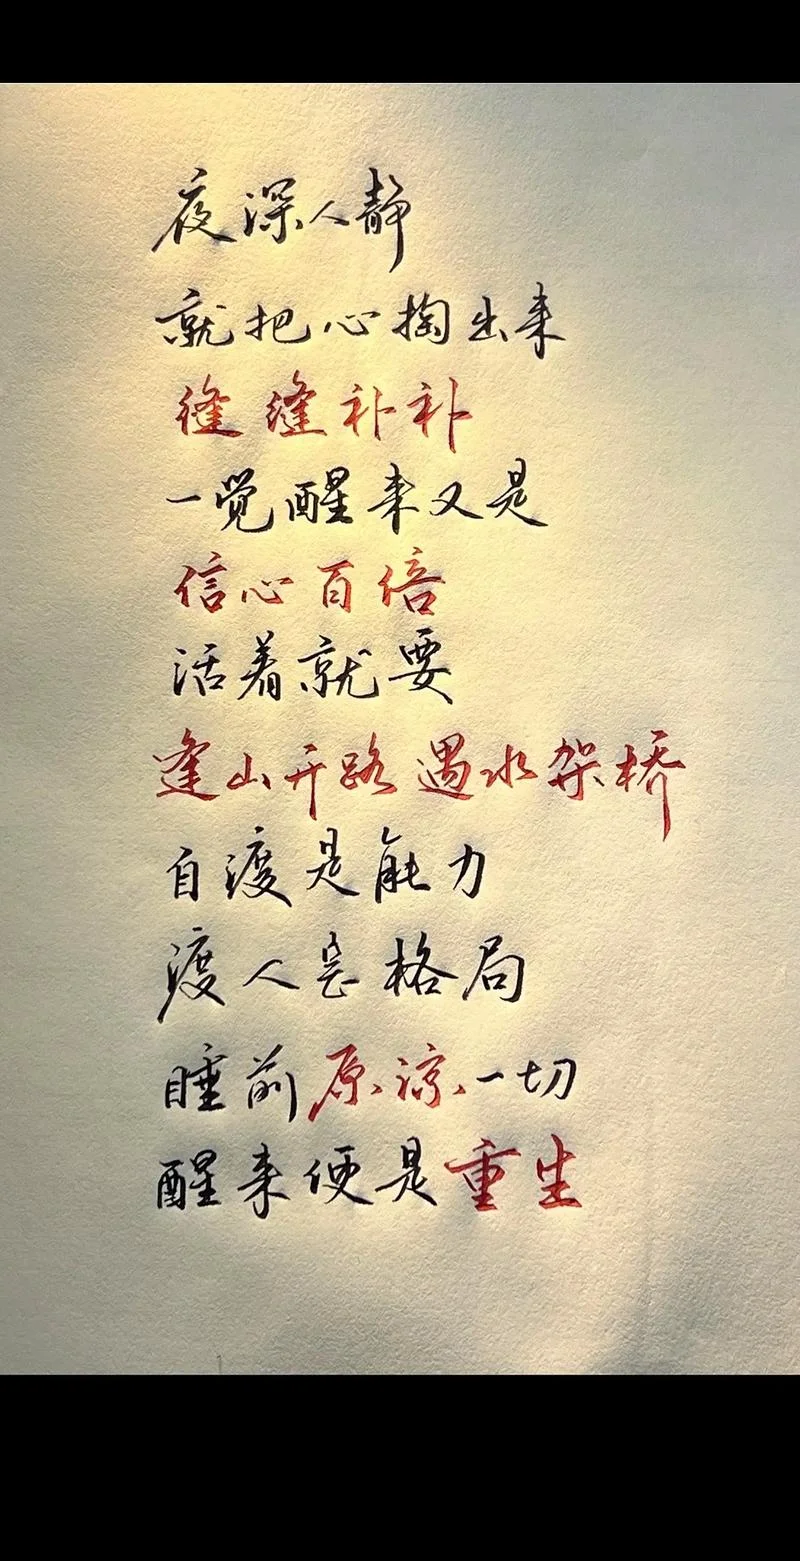 夜深人静
就把心掏出来
缝缝补补
一觉醒来又是
信心百倍
活着就要
逢山开路 遇水架桥
自渡是能力
渡人是格局
睡前原谅一切
醒来便是重生